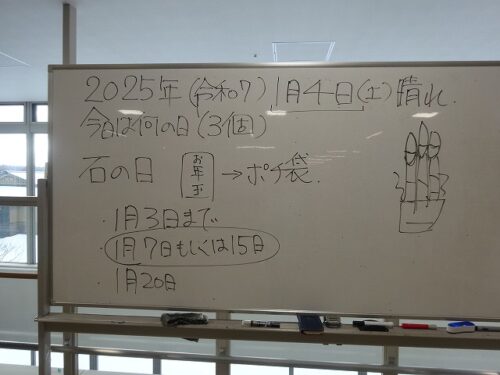 2025年(令和7)1月4日(土)晴れ.
今日は何の日(3個)
石の日 お年玉→ポチ袋.
・1月3日まで
・1月7日もしくは15日
・1月20日